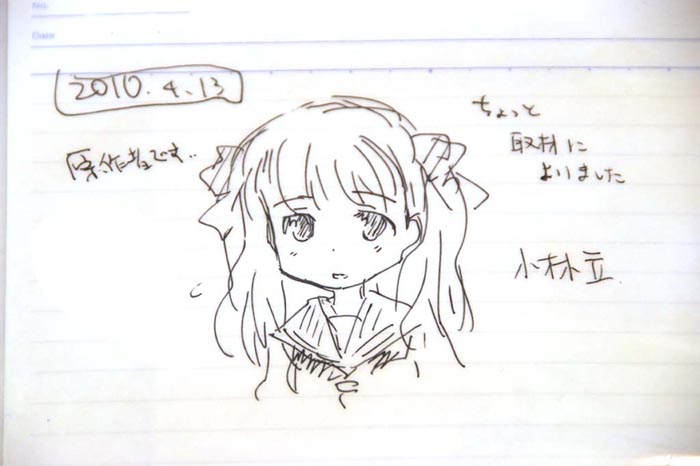 No.
Date
2010.4.13
原作者です..
ちょっと
取材に
よりました
小林立